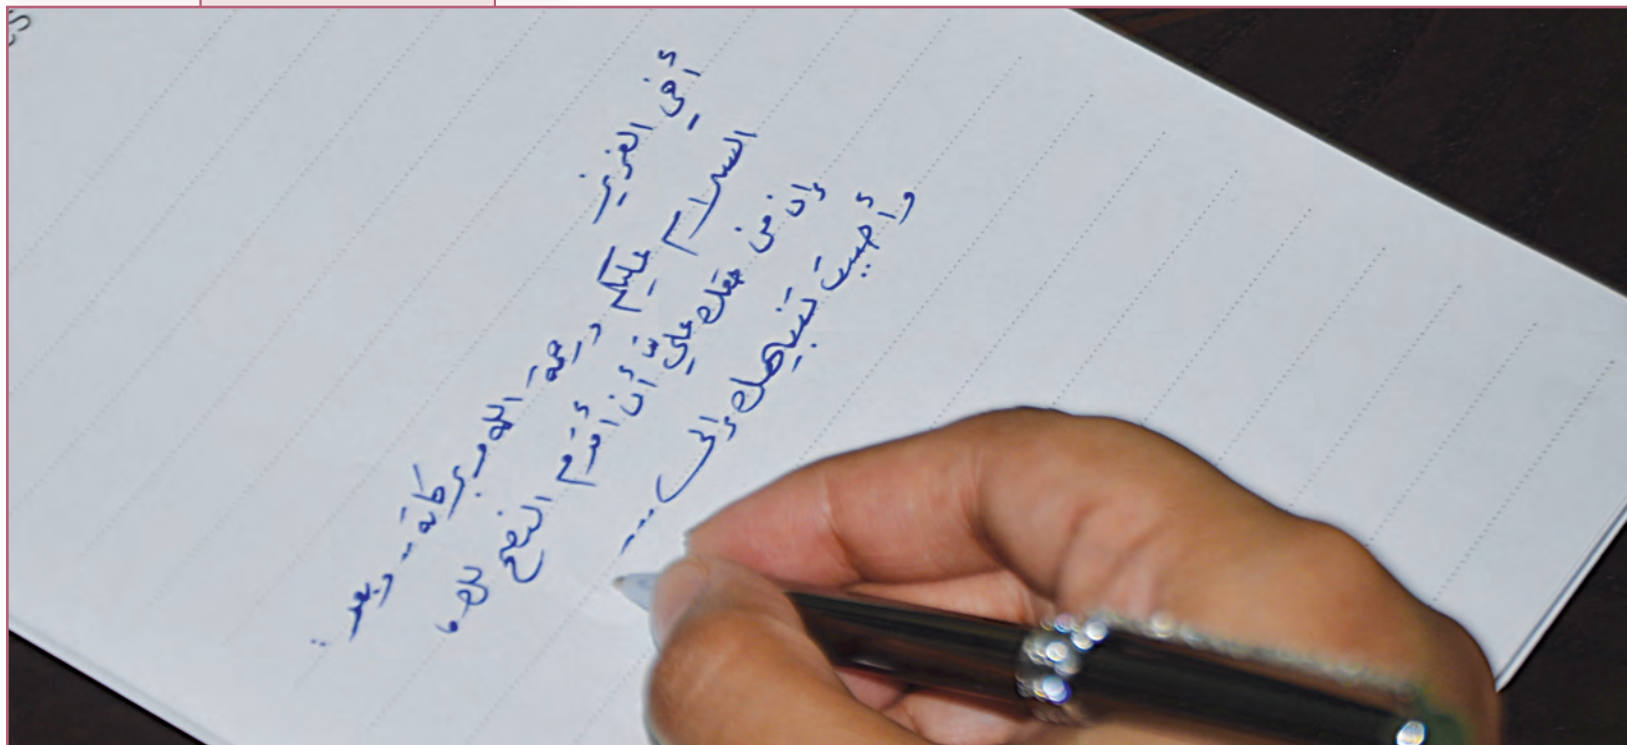 أخي العزيز
السلام عليكم ورحمة الله وبركاته .. وبعد :
إن من حقك علي أن أقدم النصح لك،
وأحببت تنبيهك إلى ...